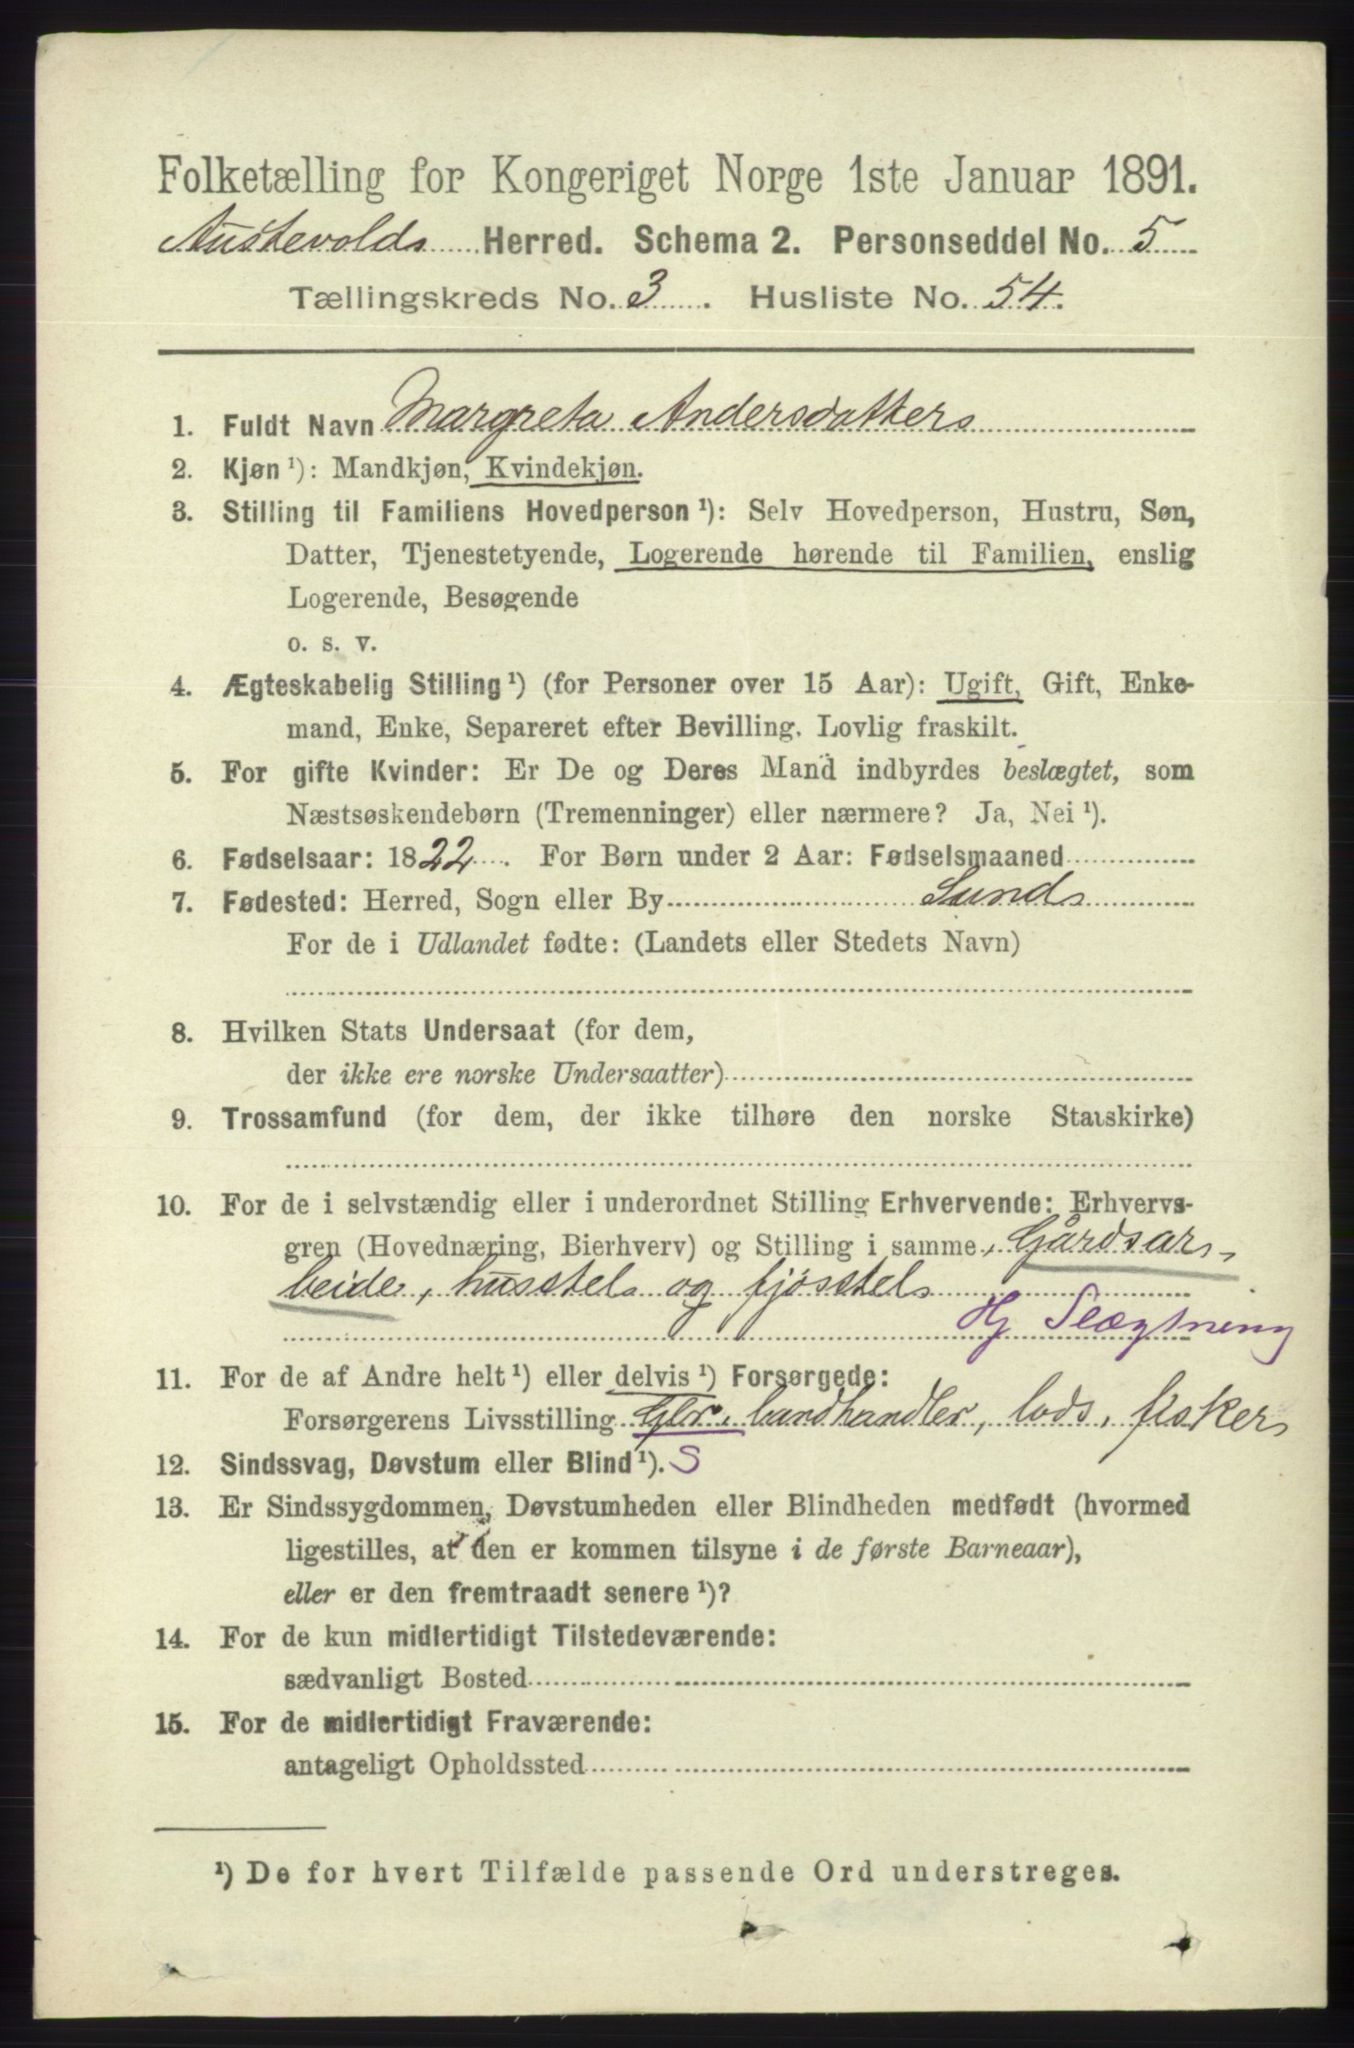 Folketælling for Kongeriget Norge 1ste Januar 1891.
Austevolds Herred. Schema 2. Personseddel No. 5
Tællingskreds No. 3. Husliste No. 54.
1. Fuldt Navn Margreta Andersdatter
2. Kjøn ¹): Mandkjøn, Kvindekjøn.
3. Stilling til Familiens Hovedperson ¹): Selv Hovedperson, Hustru, Søn,
Datter, Tjenestetyende, Logerende hørende til Familien, enslig
Logerende, Besøgende
o. s. v.
4. Ægteskabelig Stilling ¹) (for Personer over 15 Aar): Ugift, Gift, Enke-
mand, Enke, Separeret efter Bevilling. Lovlig fraskilt.
5. For gifte Kvinder: Er De og Deres Mand indbyrdes beslægtet, som
Næstsøskendebørn (Tremenninger) eller nærmere? Ja, Nei ¹).
6. Fødselsaar: 1822. For Børn under 2 Aar: Fødselsmaaned
7. Fødested: Herred, Sogn eller By Sund
For de i Udlandet fødte: (Landets eller Stedets Navn)
8. Hvilken Stats Undersaat (for dem,
der ikke ere norske Undersaatter)
9. Trossamfund (for dem, der ikke tilhøre den norske Statskirke)
10. For de i selvstændig eller i underordnet Stilling Erhvervende: Erhvervs-
gren (Hovednæring, Bierhverv) og Stilling i samme Gårdsar-
beide, husstel og fjøsstel
Hj Slægtning
11. For de af Andre helt ¹) eller delvis ¹) Forsørgede:
Forsørgerens Livsstilling Gbr. landhandler, lods, fisker
12. Sindssvag, Døvstum eller Blind ¹). S
13. Er Sindssygdommen, Døvstumheden eller Blindheden medfødt (hvormed
ligestilles, at den er kommen tilsyne i de første Barneaar),
eller er den fremtraadt senere ¹)?
14. For de kun midlertidigt Tilstedeværende:
sædvanligt Bosted
15. For de midlertidigt Fraværende:
antageligt Opholdssted
¹) De for hvert Tilfælde passende Ord understreges.